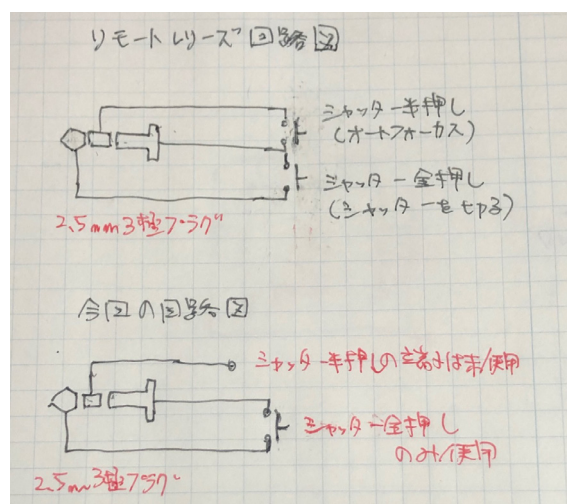 リモートレリーズ回路図
シャッター半押し
(オートフォーカス)
シャッター全押し
(シャッターを切る)
2.5mm3極プラグ
今回の回路図
シャッター半押しの端子は未使用
シャッター全押し
のみ使用
2.5mm3極プラグ